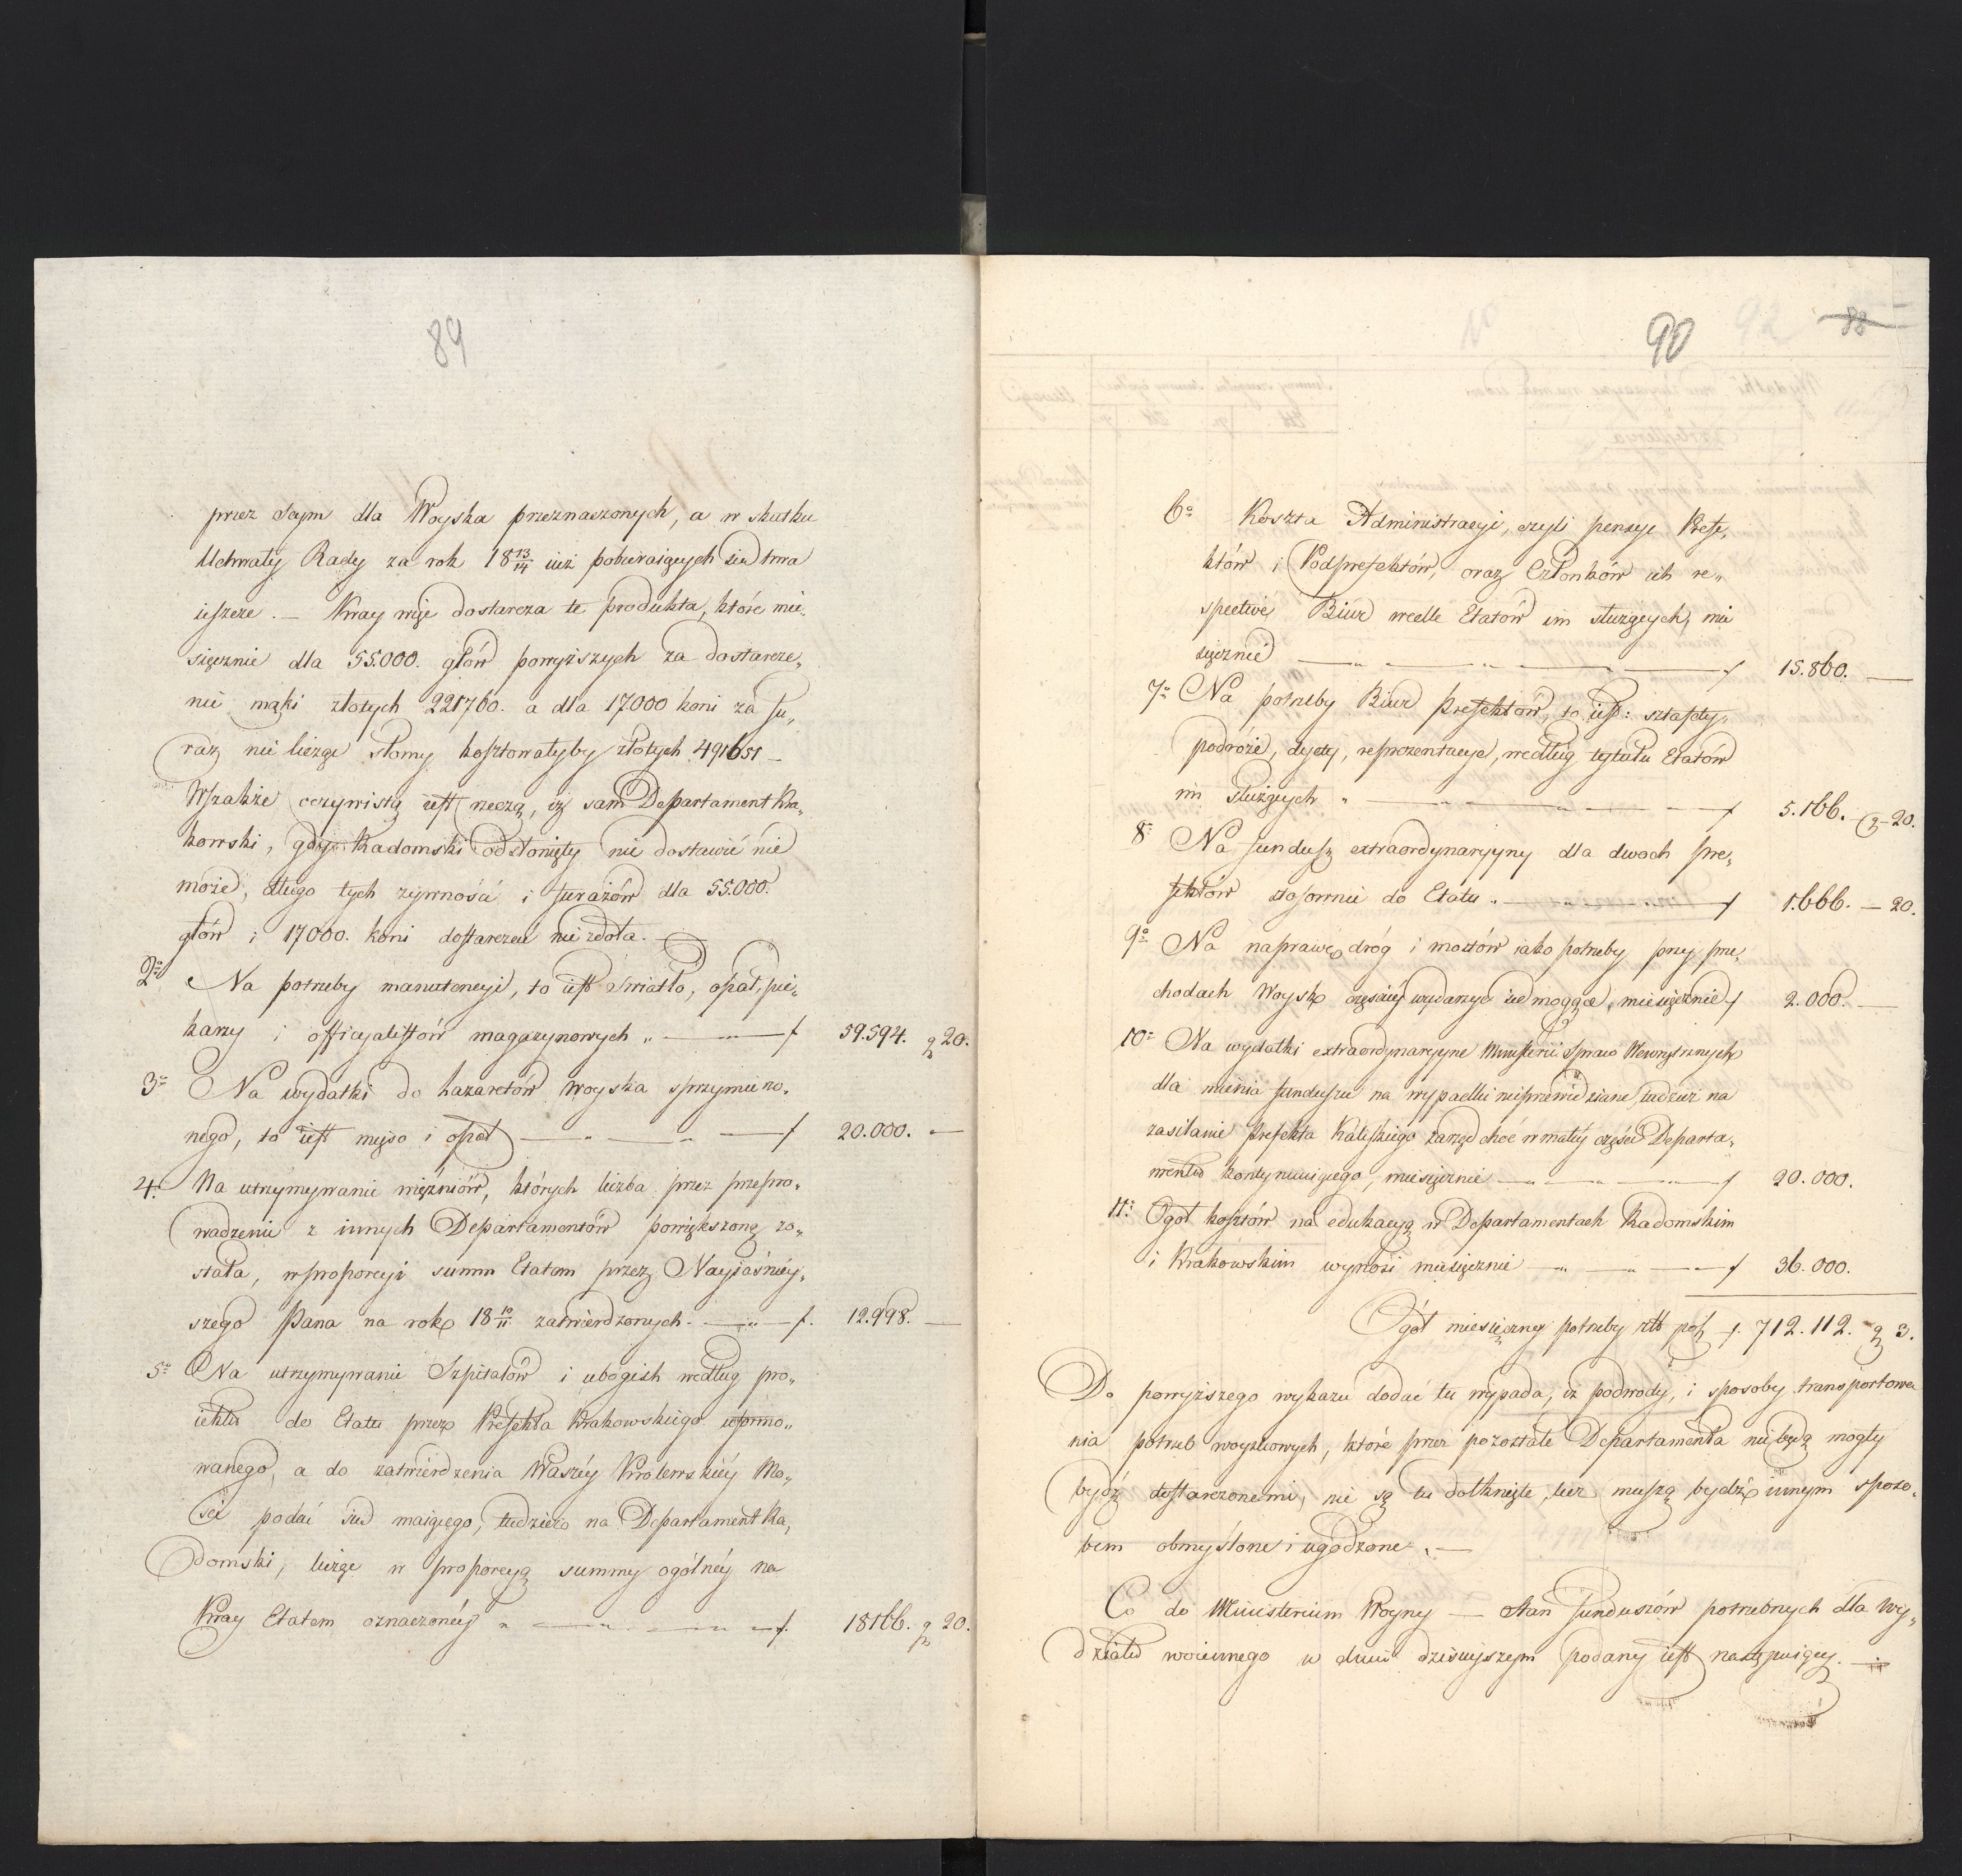 89
przez Seym dla Woyska przeznaczonych, a w skutku
Uchwały Rady za rok 18 13/14 iuż pobieraiących się trwa
ieszcze. — Kray więc dostarcza te produkta, które mie„
sięcznie dla 55.000. głów powyższych za dostarcze„
nie mąki złotych 221760. a dla 17000 koni za fu„
raż nie licząc słomy kosztowałyby złotych 491651 —
Wszakże oczywistą iest rzeczą, iż sam Departament Kra„
kowski, gdy Radomski odsłonięty nie dostawić nie
może, długo tych żywności i furażów dla 55.000.
głów i 17000. koni dostarczać nie zdoła. —
2o Na potrzeby manutencyi, to iest światło, opał, pie„
karzy i officyalistów magazynowych „ — f 59.594. g 20.
3o Na wydatki do Lazaretów Woyska sprzymierzo„
nego, to iest mięso i opał — „ — „ — f 20.000. —
4o Na utrzymywanie więźniów, których liczba przez przepro„
wadzenie z innych Departamentów powiększoną zo„
stała, w proporcyi summ Etatem przez Nayiaśniéy„
szego Pana na rok 18 10/11 zatwierdzonych. — „ — f. 12.998. —
5o Na utrzymywanie Szpitalów i ubogich według pro„
iektu do Etatu przez Prefekta Krakowskiego uformo„
wanego, a do zatwierdzenia Waszéy Królewskiéy Mo„
ści podać się maiącego, tudzież na Departament Ra„
domski, licząc w proporcyą summy ogólnéy na
Kray Etatem oznaczonéy „ — „ — „ — f. 18166. g 20.
90
88
6o Koszta Administracyi, czyli pensye Prefe„
któw i Podprefektów, oraz Członków ich re„
spective Biur wedle Etatów im służących, mie
sięcznie — „ — „ — f 15.860. —
7o Na potrzeby Biur Prefektów, to iest: sztafety,
podróże, dyety, reprezentacye, według tytułu Etatów
im służących „ — „ — f 5.166. — g — 20.
8o Na fundusz extraordynaryiny dla dwoch Pre„
fektów stosownie do Etatu „ — „ — f 1.666. — 20.
9o Na naprawę dróg i mostów iako potrzeby przy prze„
chodach Woysk częściéy wydarzyć się mogące, miesięcznie f 2.000. —
10o Na wydatki extraordynaryine Ministerii Spraw Wewnętrznych
dla mienia funduszu na wypadki nieprzewidziane, tudzież na
zasilanie Prefekta Kaliskiego zarząd choć w małéy części Departa„
mentu kontynuuiącego, miesięcznie — „ — „ — f 20.000.
11o Ogół kosztów na edukacyą w Departamentach Radomskim
i Krakowskim wynosi miesięcznie — „ — „ — f 36.000.
Ogół miesięcznéy potrzeby złt pol. f. 712.112. g 3.
Do powyższego wykazu dodać tu wypada, iż podwody, i sposoby transportowa
nia potrzeb woyskowych, które przez pozostałe Departamenta nie będą mogły
bydź dostarczonemi, nie są tu dotknięte, lecz muszą bydź innym sposo„
bem obmyślone i ugodzone. —
Co do Ministerium Woyny — Stan funduszów potrzebnych dla Wy„
działu woiennego w dniu dzisieyszym podany iest następuiący. —